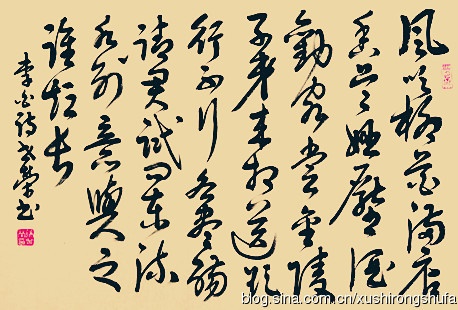 風吹柳花滿店
香吳姬壓酒
勸客嘗金陵
子弟来相送欲
行不行各盡觴
請君試问東流
水别意與之
誰短長
李白詩世榮书
blog.sina.com.cn/xushirongshufa